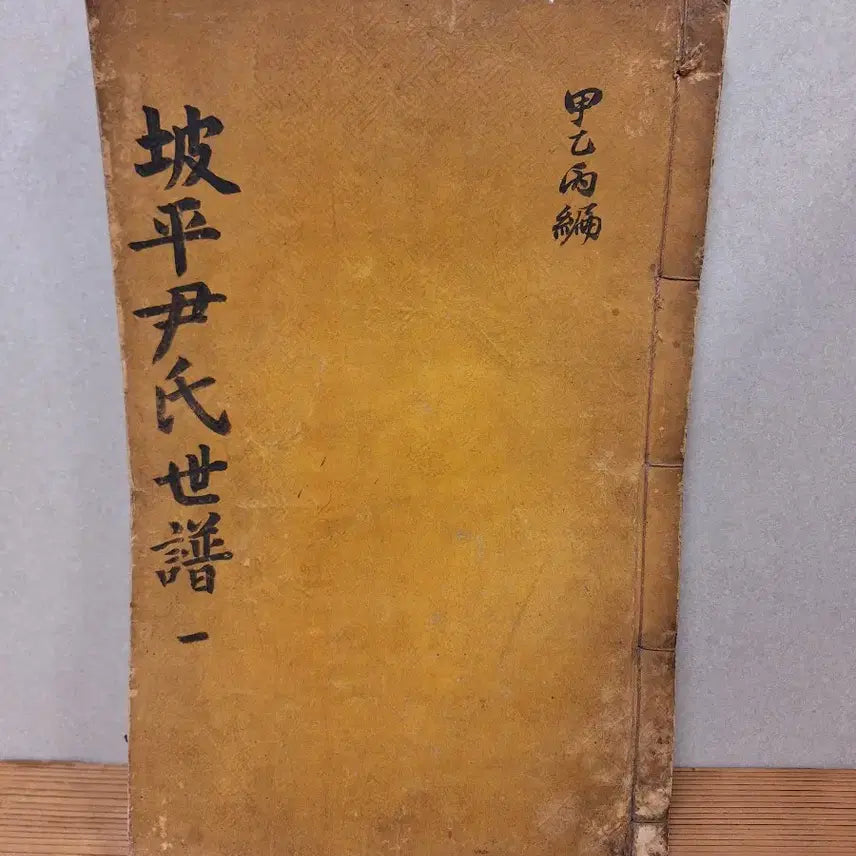 甲乙丙編
坡平尹氏世譜 一